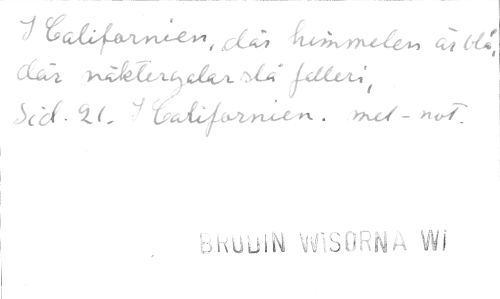 I Californien, där himmelen är blå,
där näktergalar slå falleri,
Sid. 21. I Californien. mel-not.
BRODIN WISORNA WI